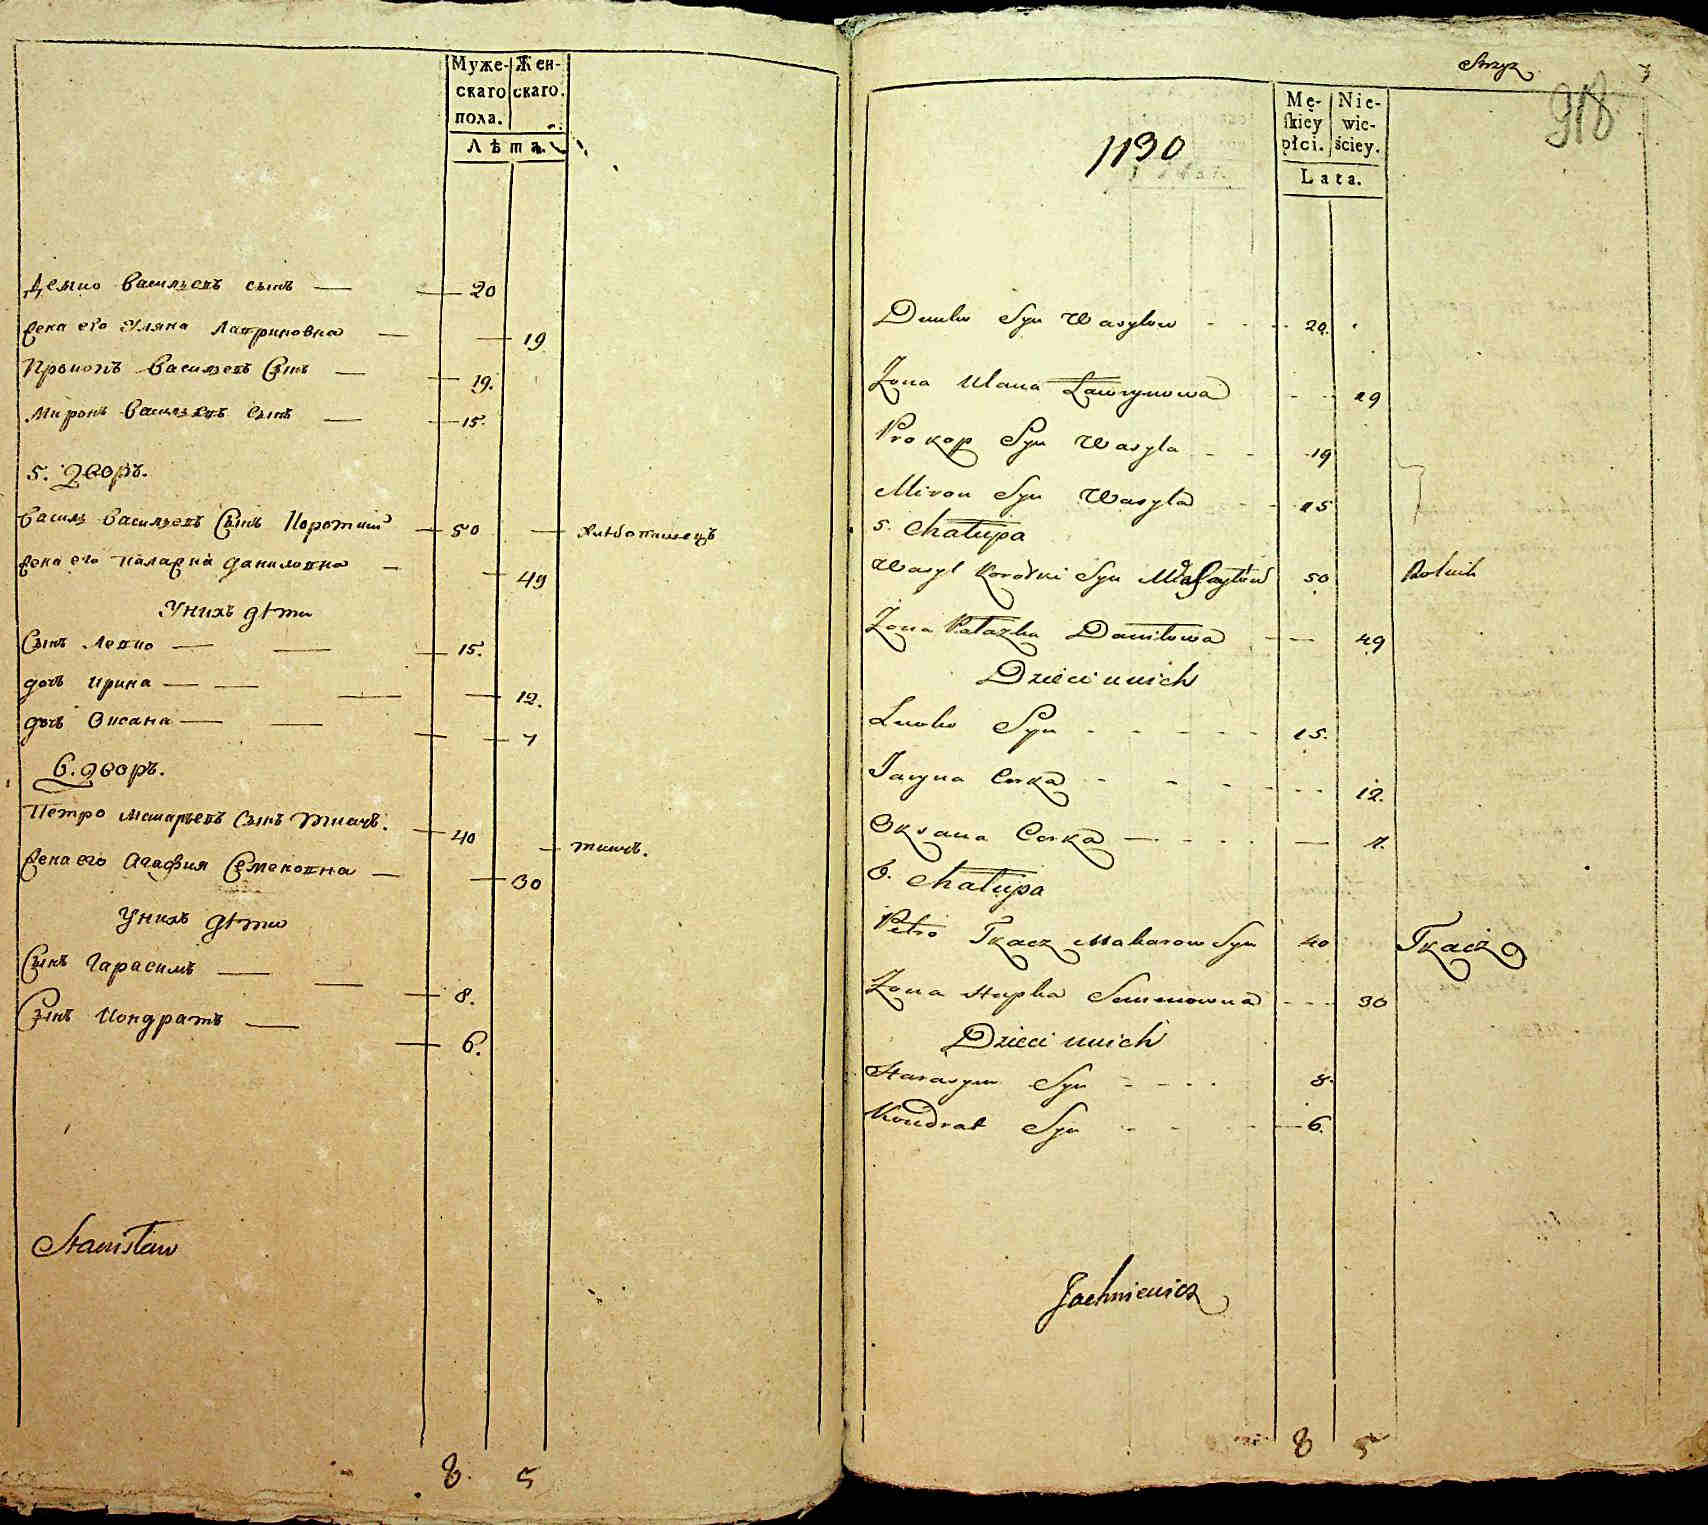 Муже-
скаго
пола.
Жен-
скаго.
Лѣта.
Демко Васильевъ сынъ — 20
Жена его Уляна Лавриновна — 19
Прокопъ Васильевъ Сынъ — 19.
Миронъ Васильевъ Сынъ — 15.
5. Дворъ.
Василь Васильевъ Сынъ Короткий — 50 — хлѣбопашецъ
Жена его Палажка Даниловна — 49
У нихъ дѣти
Сынъ Левко — 15.
дочь Ирина — 12.
дочь Оксана — 7
6. дворъ.
Петро Макарьевъ Сынъ Ткачъ. — 40 — ткачъ.
Жена его Агафия Семеновна — 30
У нихъ дѣти
Сынъ Гарасимъ — 8.
Сынъ Кондратъ — 6.
Stanisław
8. 5
Strzyz
918
1130
Mę-
ſkiey
płci.
Nie-
wie-
ściey.
Lata.
Demko Syn Wasylow - - - 20.
Zona Ulana Lawrynowa - - 19
Prokop Syn Wasyla - - 19
Miron Syn Wasyla - - 15
5. Chałupa
Wasyl Korotki Syn Wasylow 50 Rolnik
Zona Pałazka Daniłowa - — 49
Dzieci u nich
Lewko Syn - - - - - 15.
Jaryna Corka - - - - - 12.
Oksana Corka — - - - — 7.
6. Chałupa
Petro Tkacz Makarow Syn 40 Tkacz
Zona Hapka Semenowna - - - 30
Dzieci u nich
Harasym Syn - - - - 8.
Kondrat Syn - - - - 6.
Jachniewicz
8 5